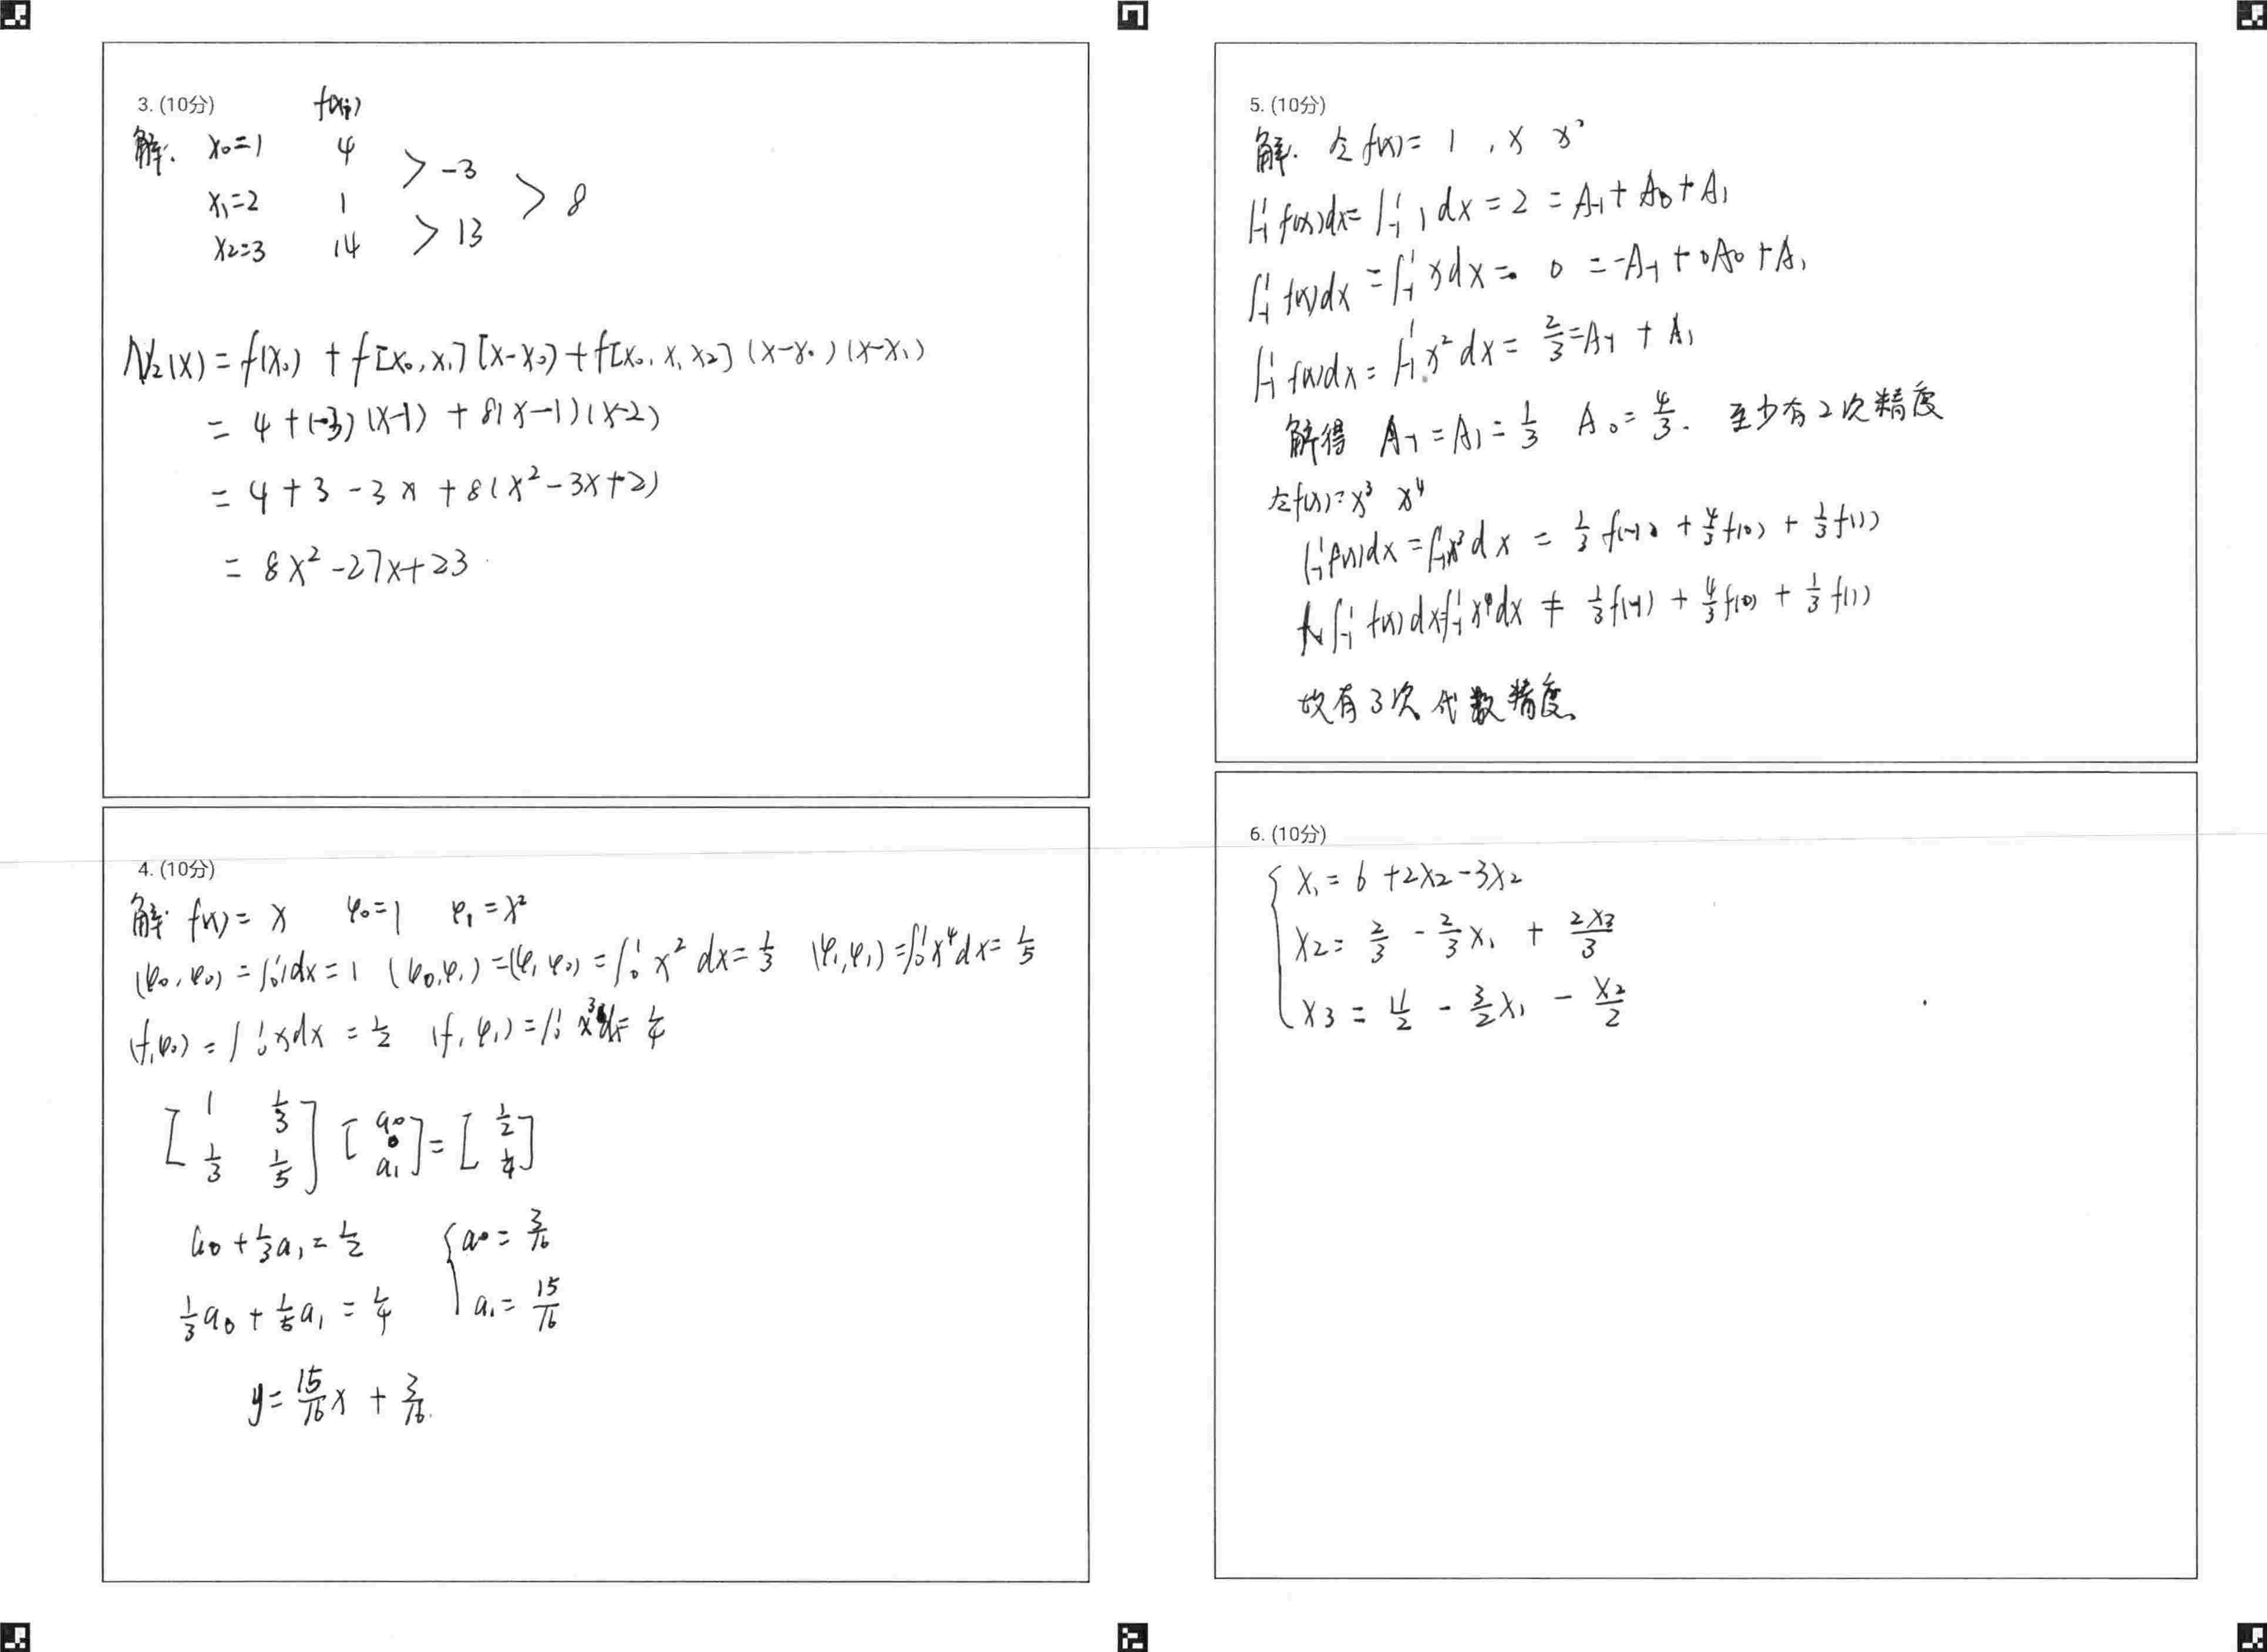 3. (10分)
f(xᵢ)
解: x₀=1 4
> -3
x₁=2 1 > 8
> 13
x₂=3 14
N₂(x) = f(x₀) + f[x₀,x₁][x-x₀) + f[x₀,x₁x₂](x-x₀)(x-x₁)
= 4 + (-3)(x-1) + 8(x-1)(x-2)
= 4 + 3 - 3x + 8(x²-3x+2)
= 8x²-27x+23
4. (10分)
解: f(x) = x φ₀=1 φ₁=x²
(φ₀,φ₀) = ∫₀¹1dx = 1 (φ₀,φ₁) = (φ₁,φ₀) = ∫₀¹ x² dx = 1/3 (φ₁,φ₁) = ∫₀¹x⁴dx = 1/5
(f,φ₀) = ∫₀¹xdx = 1/2 (f,φ₁) = ∫₀¹ x³dx = 1/4
[1 1/3; 1/3 1/5] [a₀; a₁] = [1/2; 1/4]
a₀ + 1/3a₁ = 1/2 { a₀ = 3/16
1/3a₀ + 1/5a₁ = 1/4 a₁ = 15/16
y = 15/16x + 3/16.
5. (10分)
解: 令f(x) = 1, x x²
∫₋₁¹ f(x)dx = ∫₋₁¹ 1dx = 2 = A₋₁ + A₀ + A₁
∫₋₁¹ f(x)dx = ∫₋₁¹ xdx = 0 = -A₋₁ + 0A₀ + A₁
∫₋₁¹ f(x)dx = ∫₋₁¹ x²dx = 2/3 = A₋₁ + A₁
解得 A₋₁ = A₁ = 1/3 A₀ = 4/3. 至少有2次精度
令f(x) = x³ x⁴
∫₋₁¹f(x)dx = ∫₋₁¹x³dx = 1/3 f(-1) + 4/3 f(0) + 1/3 f(1)
∫₋₁¹ f(x)dx = ∫₋₁¹ x⁴dx ≠ 1/3 f(-1) + 4/3 f(0) + 1/3 f(1)
故有3次代数精度。
6. (10分)
{ x₁ = 6 + 2x₂ - 3x₂
x₂ = 2/3 - 2/3x₁ + 2x₃/3
x₃ = 11/2 - 3/2x₁ - x₂/2